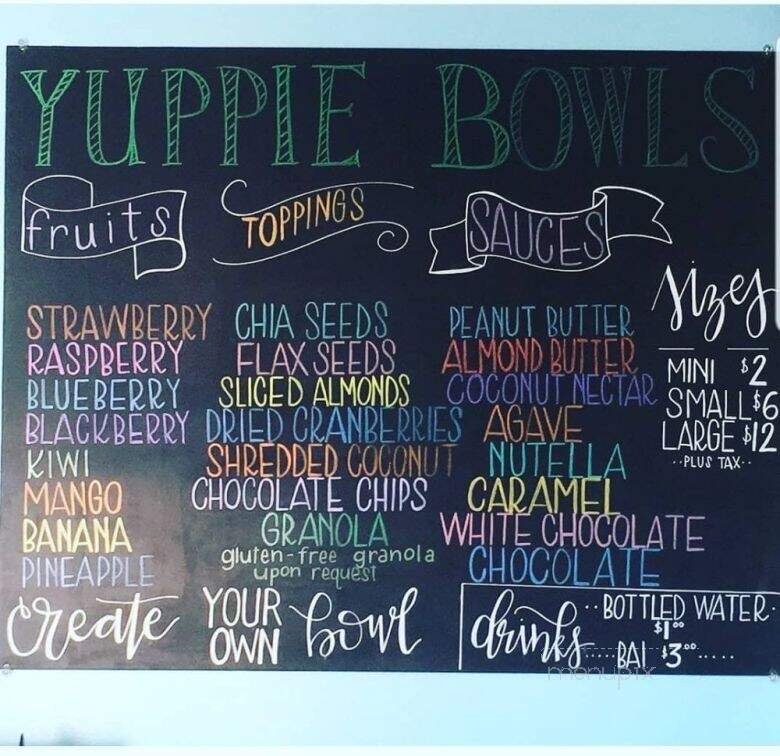 YUPPIE BOWLS
fruits
STRAWBERRY
RASPBERRY
BLUEBERRY
BLACKBERRY
KIWI
MANGO
BANANA
PINEAPPLE
TOPPINGS
CHIA SEEDS
FLAX SEEDS
SLICED ALMONDS
DRIED CRANBERRIES
SHREDDED COCONUT
CHOCOLATE CHIPS
GRANOLA
gluten-free granola
upon request
SAUCES
PEANUT BUTTER
ALMOND BUTTER
COCONUT NECTAR
AGAVE
NUTELLA
CARAMEL
WHITE CHOCOLATE
CHOCOLATE
sizes
MINI $2
SMALL $6
LARGE $12
··PLUS TAX··
create YOUR OWN bowl
drinks
··BOTTLED WATER·
$1⁰⁰
·····BAI $3⁰⁰·····
menupix